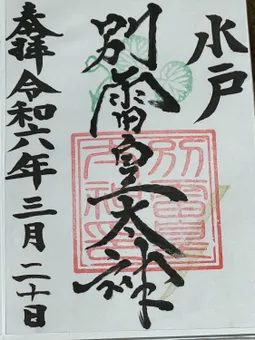 水戸
別雷皇太神
奉拝 令和六年三月二十日